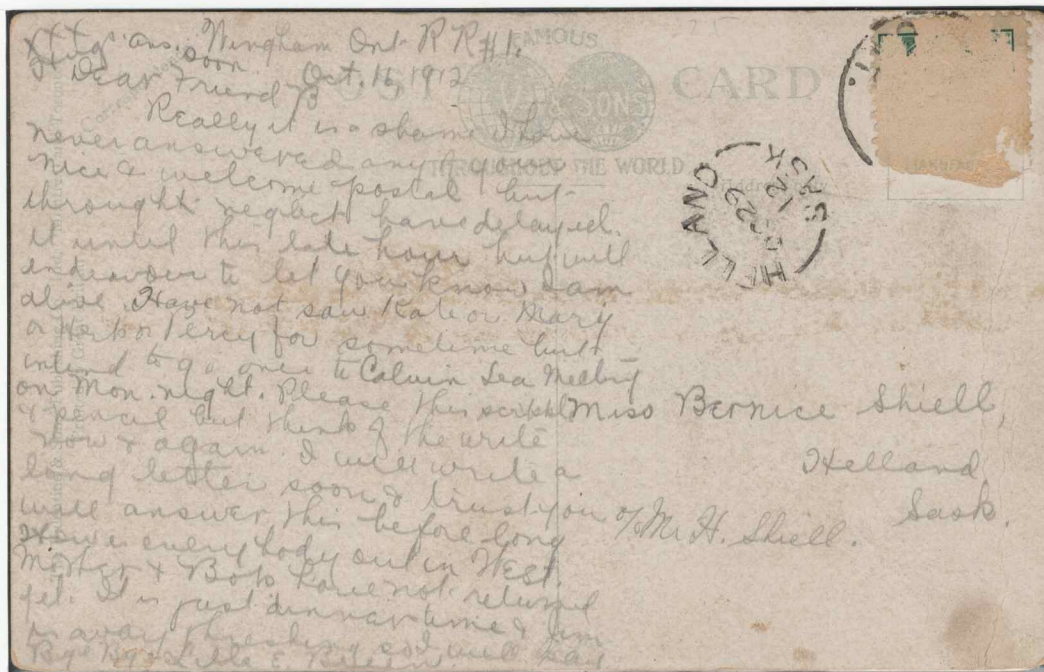 xxx
Hugs ans. soon
Wingham Ont R R #1.
Oct. 16, 1912
Dear Friend B
Really it is a shame I have
never answered any of your
nice & welcome postal but
throught neglect have delayed
it until this late hour but will
endeavour to let you know I am
alive. Have not saw Kate or Mary
or Herb or Percy for sometime but
intend to go over to Calvin Tea Meeting
on Mon. night. Please this scribble
& pencil but think of the write
now & again. I will write a
long letter soon & trust you
will answer this before long
How is every body out in West.
Mother & Bob have not returned
yet. It is just dinner time & am
away threshing so I will say
Bye Bye
FAMOUS
POST CARD
& SONS
THROUGHOUT THE WORLD
HELLAND
SASK
OC 22
12
Miss Bernice Shiell,
Helland
Sask.
c/o Mr H. Shiell.